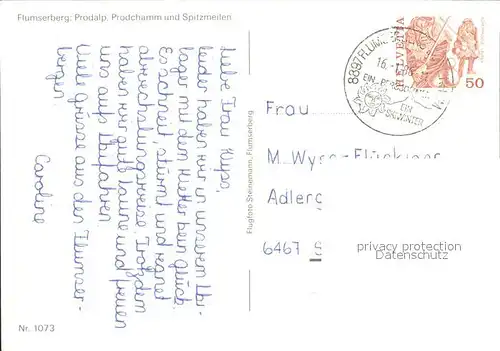 Flumserberg: Prodalp, Prodchamm und Spitzmeilen
Liebe Frau Wyss,
leider haben wir in unserem Ski-
lager mit dem Wetter kein Glück.
Es schneit, stürmt und regnet
abwechslungsweise. Trotzdem
haben wir gute Laune und freuen
uns aufs Skifahren.
Viele Grüsse aus den Flumser-
bergen
Caroline
Nr. 1073
Flugfoto Steinemann, Flumserberg
8897 FLUMSERBERG
16.
EIN
HELVETIA
50
Frau
M. Wyss-Flückiger
Adlerg
6467 S
privacy protection
Datenschutz